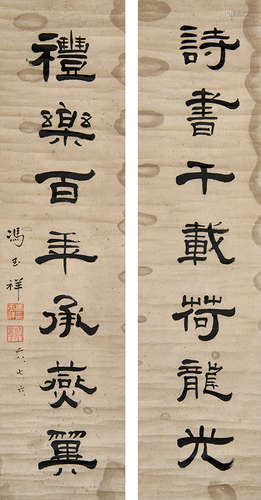 詩書千載荷龍光
禮樂百年承燕翼
馮玉祥
廿八、七、六